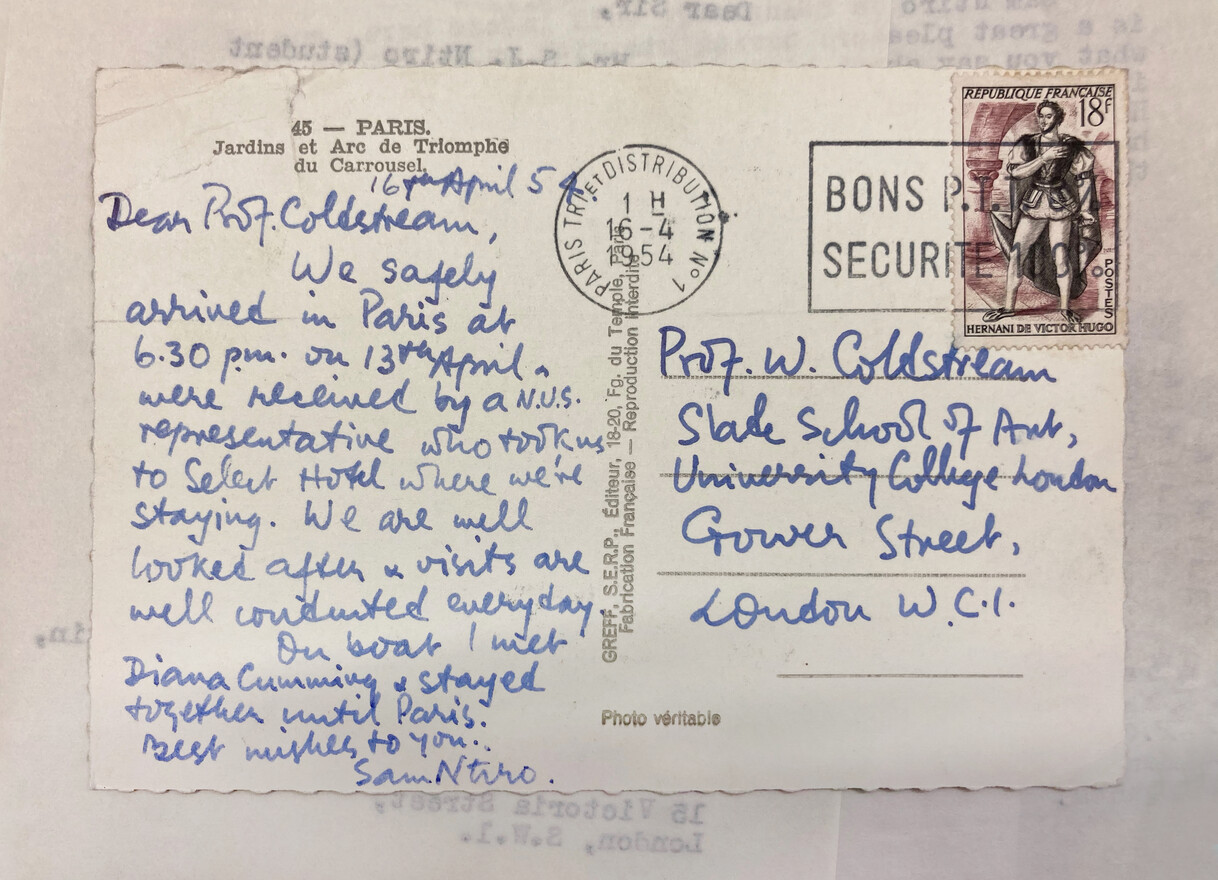 Dear Sir,
is a great
Mr. S.J. Ntiro (student
what you say
45 — PARIS.
Jardins et Arc de Triomphe
du Carrousel.
16th April 54.
Dear Prof. Coldstream,
We safely
arrived in Paris at
6.30 p.m. on 13th April &
were received by a N.U.S.
representative who took us
to Select Hotel where we're
staying. We are well
looked after & visits are
well conducted everyday.
On boat I met
Diana Cumming & stayed
together until Paris.
Best wishes to you.
Sam Ntiro.
PARIS TRI ET DISTRIBUTION No 1
1 H
16-4
1954
BONS P.T.T.
SECURITE 100%
REPUBLIQUE FRANÇAISE
18F
POSTES
HERNANI DE VICTOR HUGO
GREFF, S.E.R.P., Éditeur, 18-20, Fg. du Temple, Paris
Fabrication Française — Reproduction Interdite
Prof. W. Coldstream
Slade School of Art,
University College London
Gower Street,
London W.C.1.
Photo véritable
15 Victoria Street,
London, S.W.1.